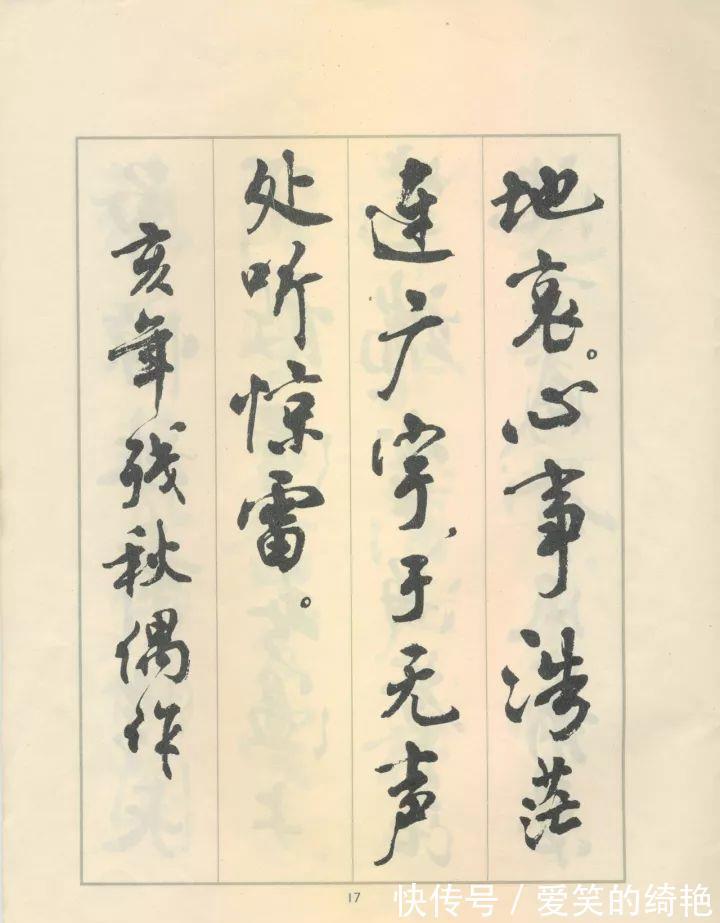 地哀。心事浩茫
连广宇、于无声
处听惊雷。
亥年残秋偶作
17
快传号 / 爱笑的绮艳